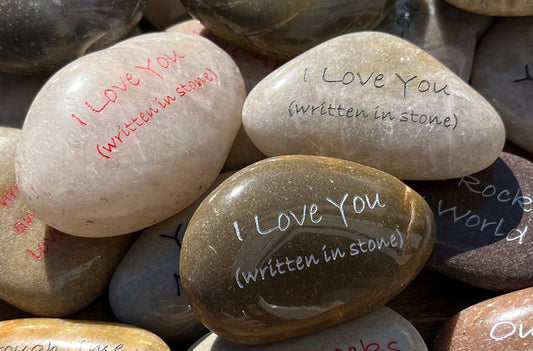 I Love You
(written in stone)
I Love You
(written in stone)
I Love You
(written in stone)
Rock
World
Love